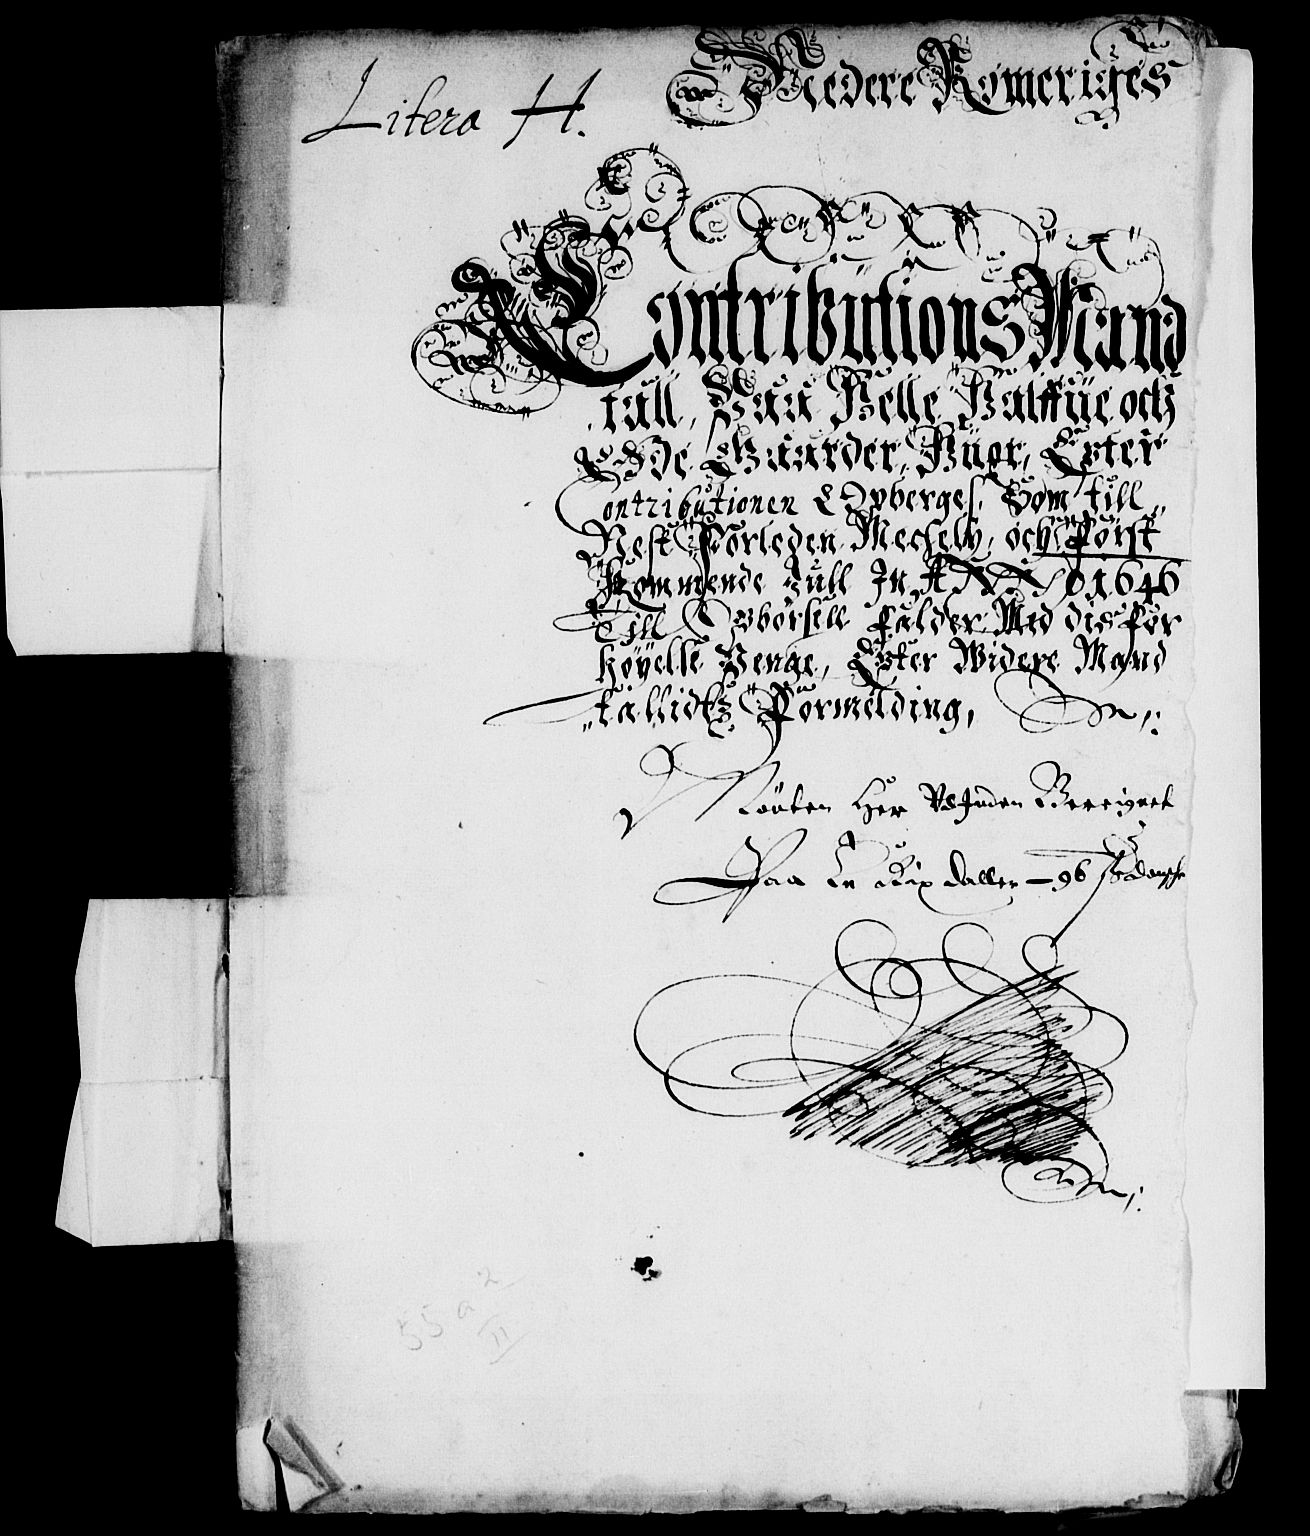 Litera H.
Nedere Romeriges
Contributions Mand
tall, Paa Helle Halffue och
Øde Gaarder, Huor Epter
Contributionen Opberges, Som till
Nest Forleden Mechely, och Først
Kommende Jull In ANNO 1646
Till Opbørsell falder Med dis For
høyelse Penge, Epter Widere Mand
tallidtz Formelding,
Mønten Her Udinden Berignet
Paa En Rix daller – 96
55 a 2
11